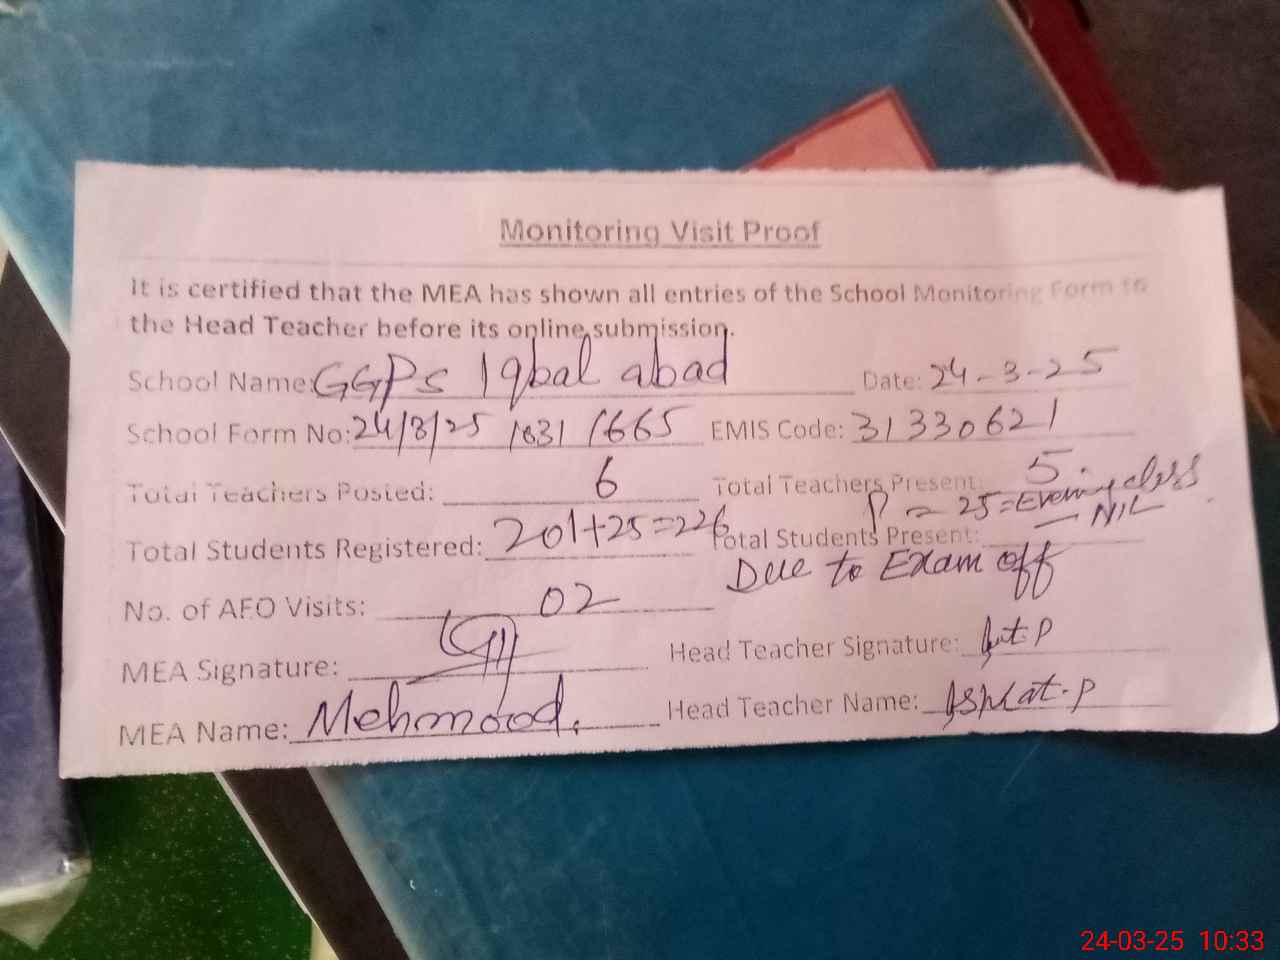 Monitoring Visit Proof
It is certified that the MEA has shown all entries of the School Monitoring Form to
the Head Teacher before its online submission.
School Name: GGPS Iqbal abad Date: 24-3-25
School Form No: 24/3/25 1031 1665 EMIS Code: 31330621
Total Teachers Posted: 6 Total Teachers Present: 5
P = 25 = Evening class
Total Students Registered: 201+25=226 Total Students Present: — NIL
Due to Exam off
No. of AEO Visits: 02
MEA Signature: Head Teacher Signature:
MEA Name: Mehmood. Head Teacher Name:
24-03-25 10:33